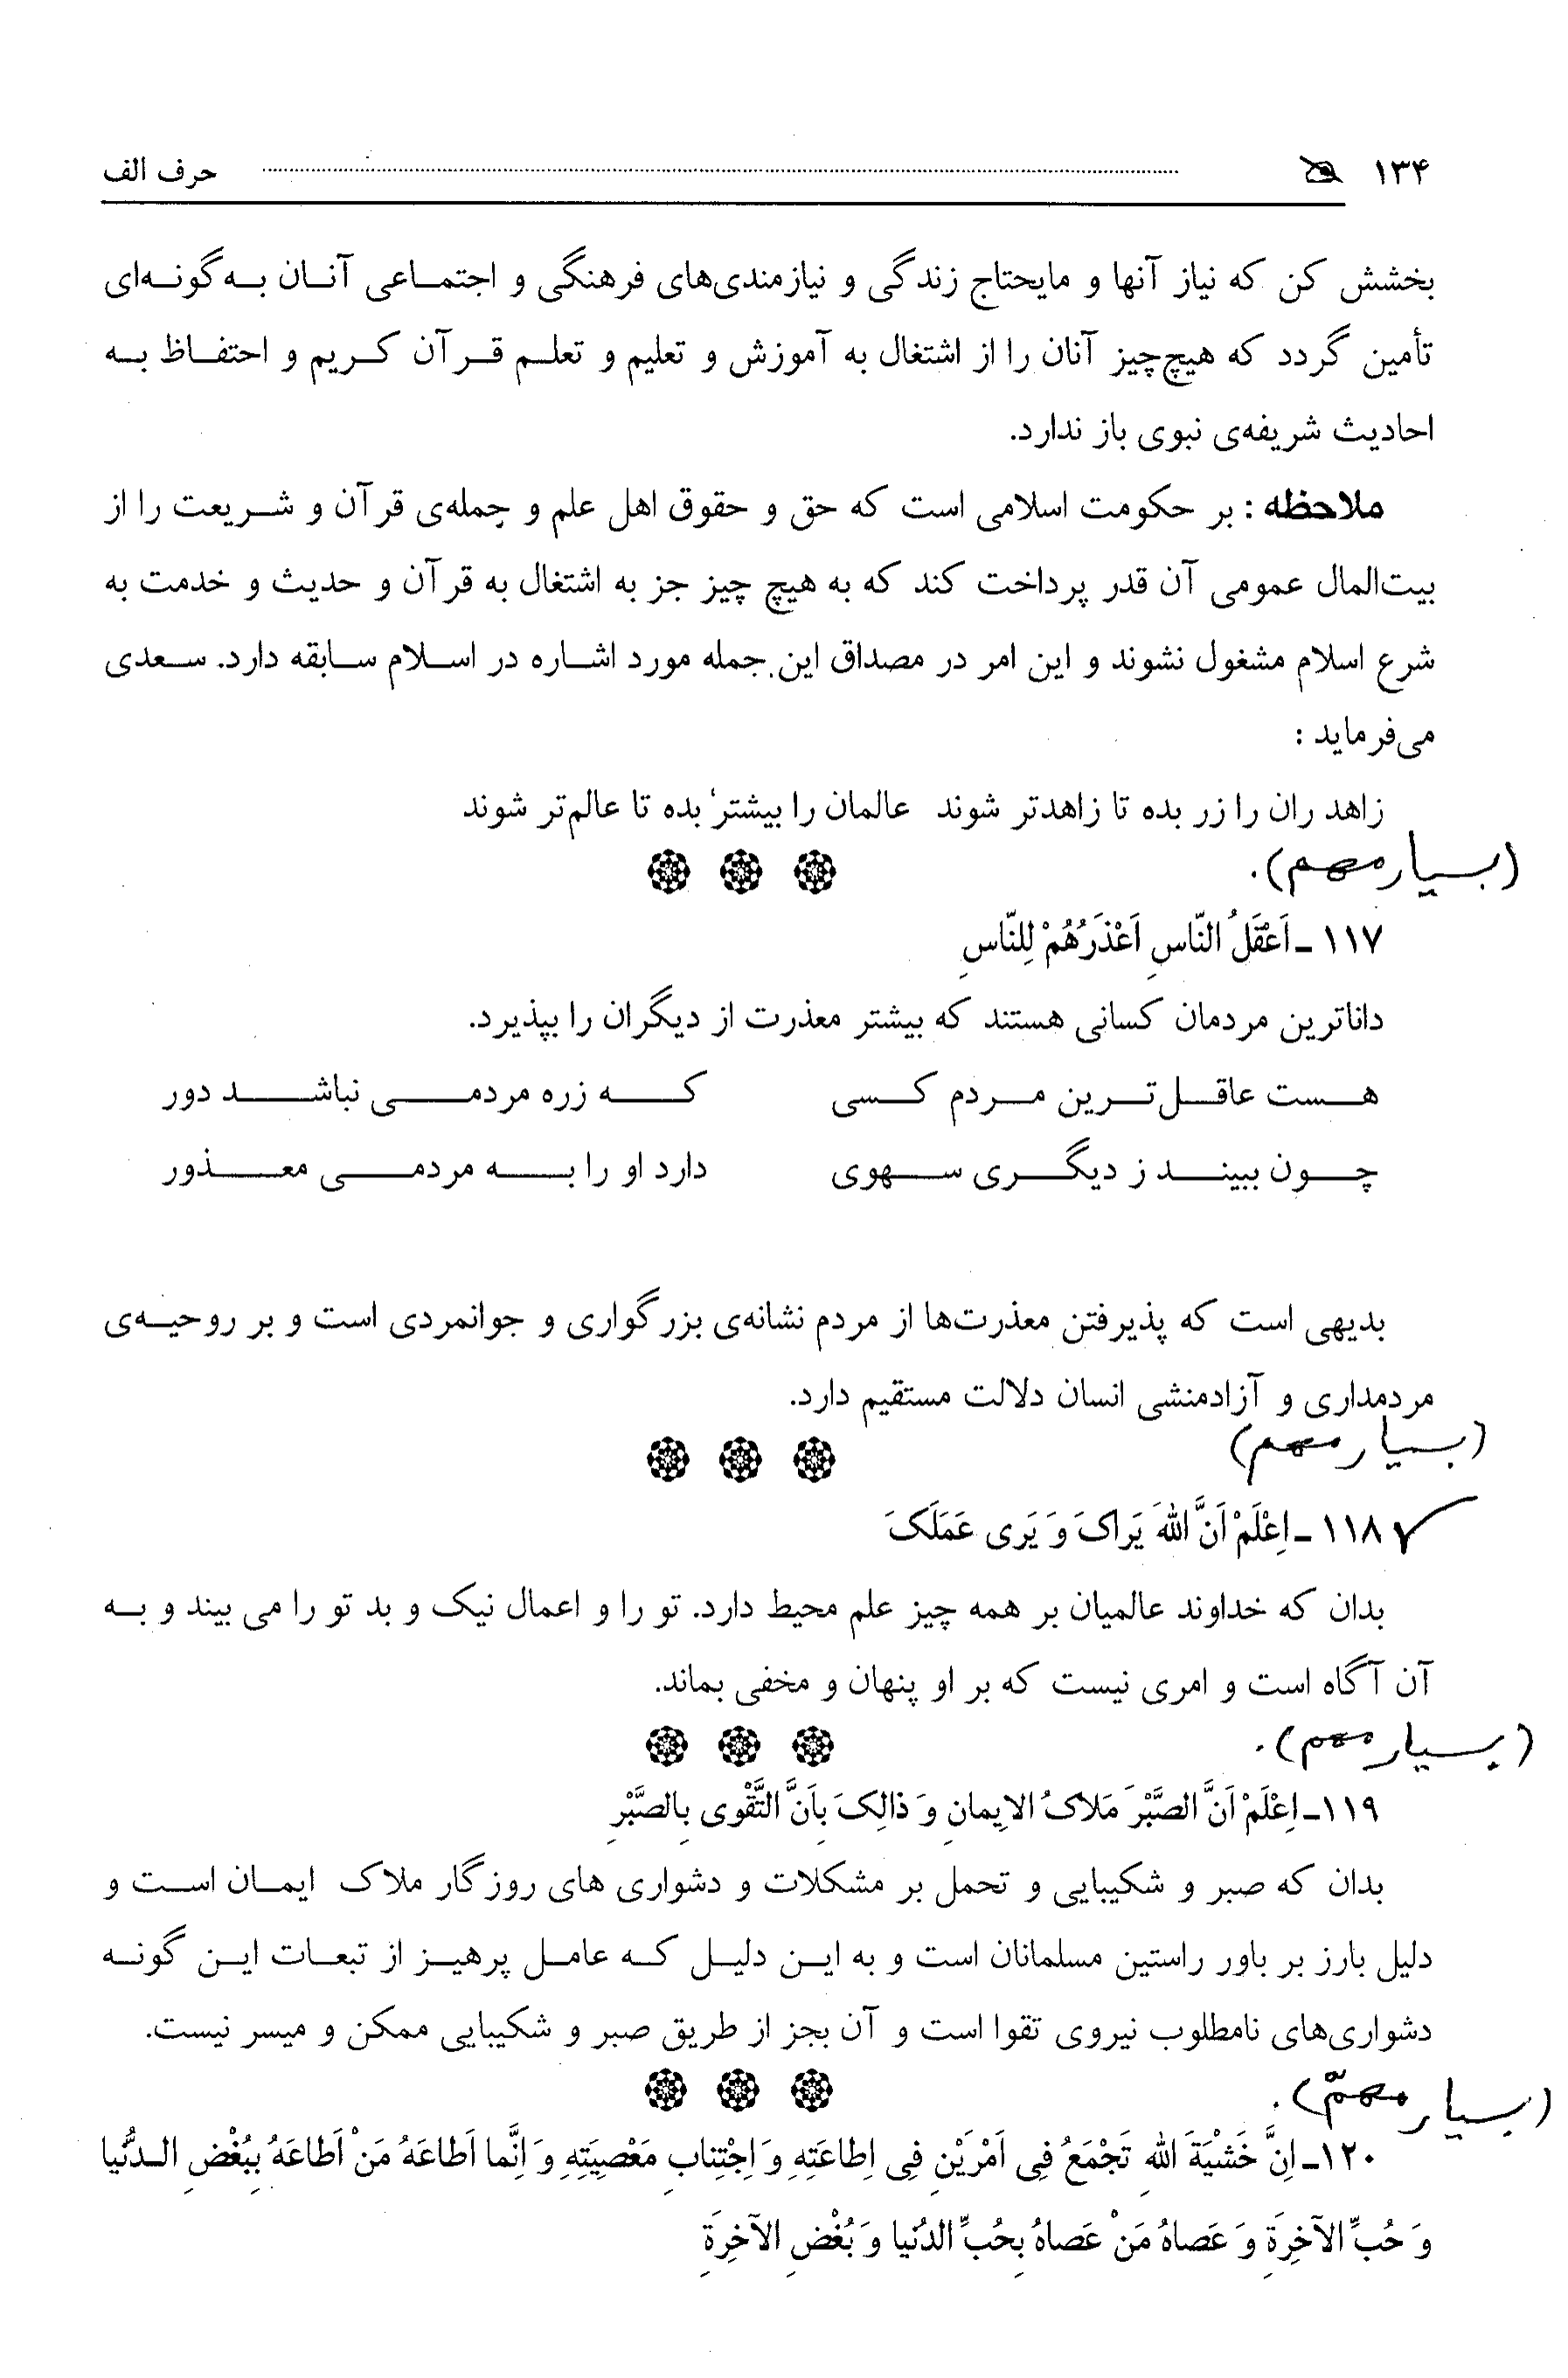 ۱۳۴ حرف الف
بخشش کن که نیاز آنها و مایحتاج زندگی و نیازمندی‌های فرهنگی و اجتماعی آنان به‌گونه‌ای
تأمین گردد که هیچ‌چیز آنان را از اشتغال به آموزش و تعلیم و تعلم قرآن کریم و احتفاظ به
احادیث شریفه‌ی نبوی باز ندارد.
ملاحظه : بر حکومت اسلامی است که حق و حقوق اهل علم و جمله‌ی قرآن و شریعت را از
بیت‌المال عمومی آن قدر پرداخت کند که به هیچ چیز جز به اشتغال به قرآن و حدیث و خدمت به
شرع اسلام مشغول نشوند و این امر در مصداق این جمله مورد اشاره در اسلام سابقه دارد. سعدی
می‌فرماید :
زاهد ران را زر بده تا زاهدتر شوند عالمان را بیشتر بده تا عالم‌تر شوند
(بسیار مهم).
۱۱۷ ـ اَعْقَلُ النّاسِ اَعْذَرُهُمْ لِلنّاسِ
داناترین مردمان کسانی هستند که بیشتر معذرت از دیگران را بپذیرد.
هست عاقل‌ترین مردم کسی که زره مردمی نباشد دور
چون ببیند ز دیگری سهوی دارد او را به مردمی معذور
بدیهی است که پذیرفتن معذرت‌ها از مردم نشانه‌ی بزرگواری و جوانمردی است و بر روحیه‌ی
مردمداری و آزادمنشی انسان دلالت مستقیم دارد.
(بسیار مهم)
۱۱۸ ـ اِعْلَمْ اَنَّ اللهَ یَراکَ وَ یَری عَمَلَکَ
بدان که خداوند عالمیان بر همه چیز علم محیط دارد. تو را و اعمال نیک و بد تو را می بیند و به
آن آگاه است و امری نیست که بر او پنهان و مخفی بماند.
(بسیار مهم).
۱۱۹ـ اِعْلَمْ اَنَّ الصَّبْرَ مَلاکُ الایمانِ وَ ذالِکَ بِاَنَّ التَّقْوی بِالصَّبْرِ
بدان که صبر و شکیبایی و تحمل بر مشکلات و دشواری های روزگار ملاک ایمان است و
دلیل بارز بر باور راستین مسلمانان است و به این دلیل که عامل پرهیز از تبعات این گونه
دشواری‌های نامطلوب نیروی تقوا است و آن بجز از طریق صبر و شکیبایی ممکن و میسر نیست.
(بسیار مهمّ).
۱۲۰ـ اِنَّ خَشْیَةَ اللهِ تَجْمَعُ فِی اَمْرَیْنِ فِی اِطاعَتِهِ وَ اِجْتِنابِ مَعْصِیَتِهِ وَ اِنَّما اَطاعَهُ مَنْ اَطاعَهُ بِبُغْضِ الدُّنیا
وَ حُبِّ الآخِرَةِ وَ عَصاهُ مَنْ عَصاهُ بِحُبِّ الدُنیا وَ بُغْضِ الآخِرَةِ